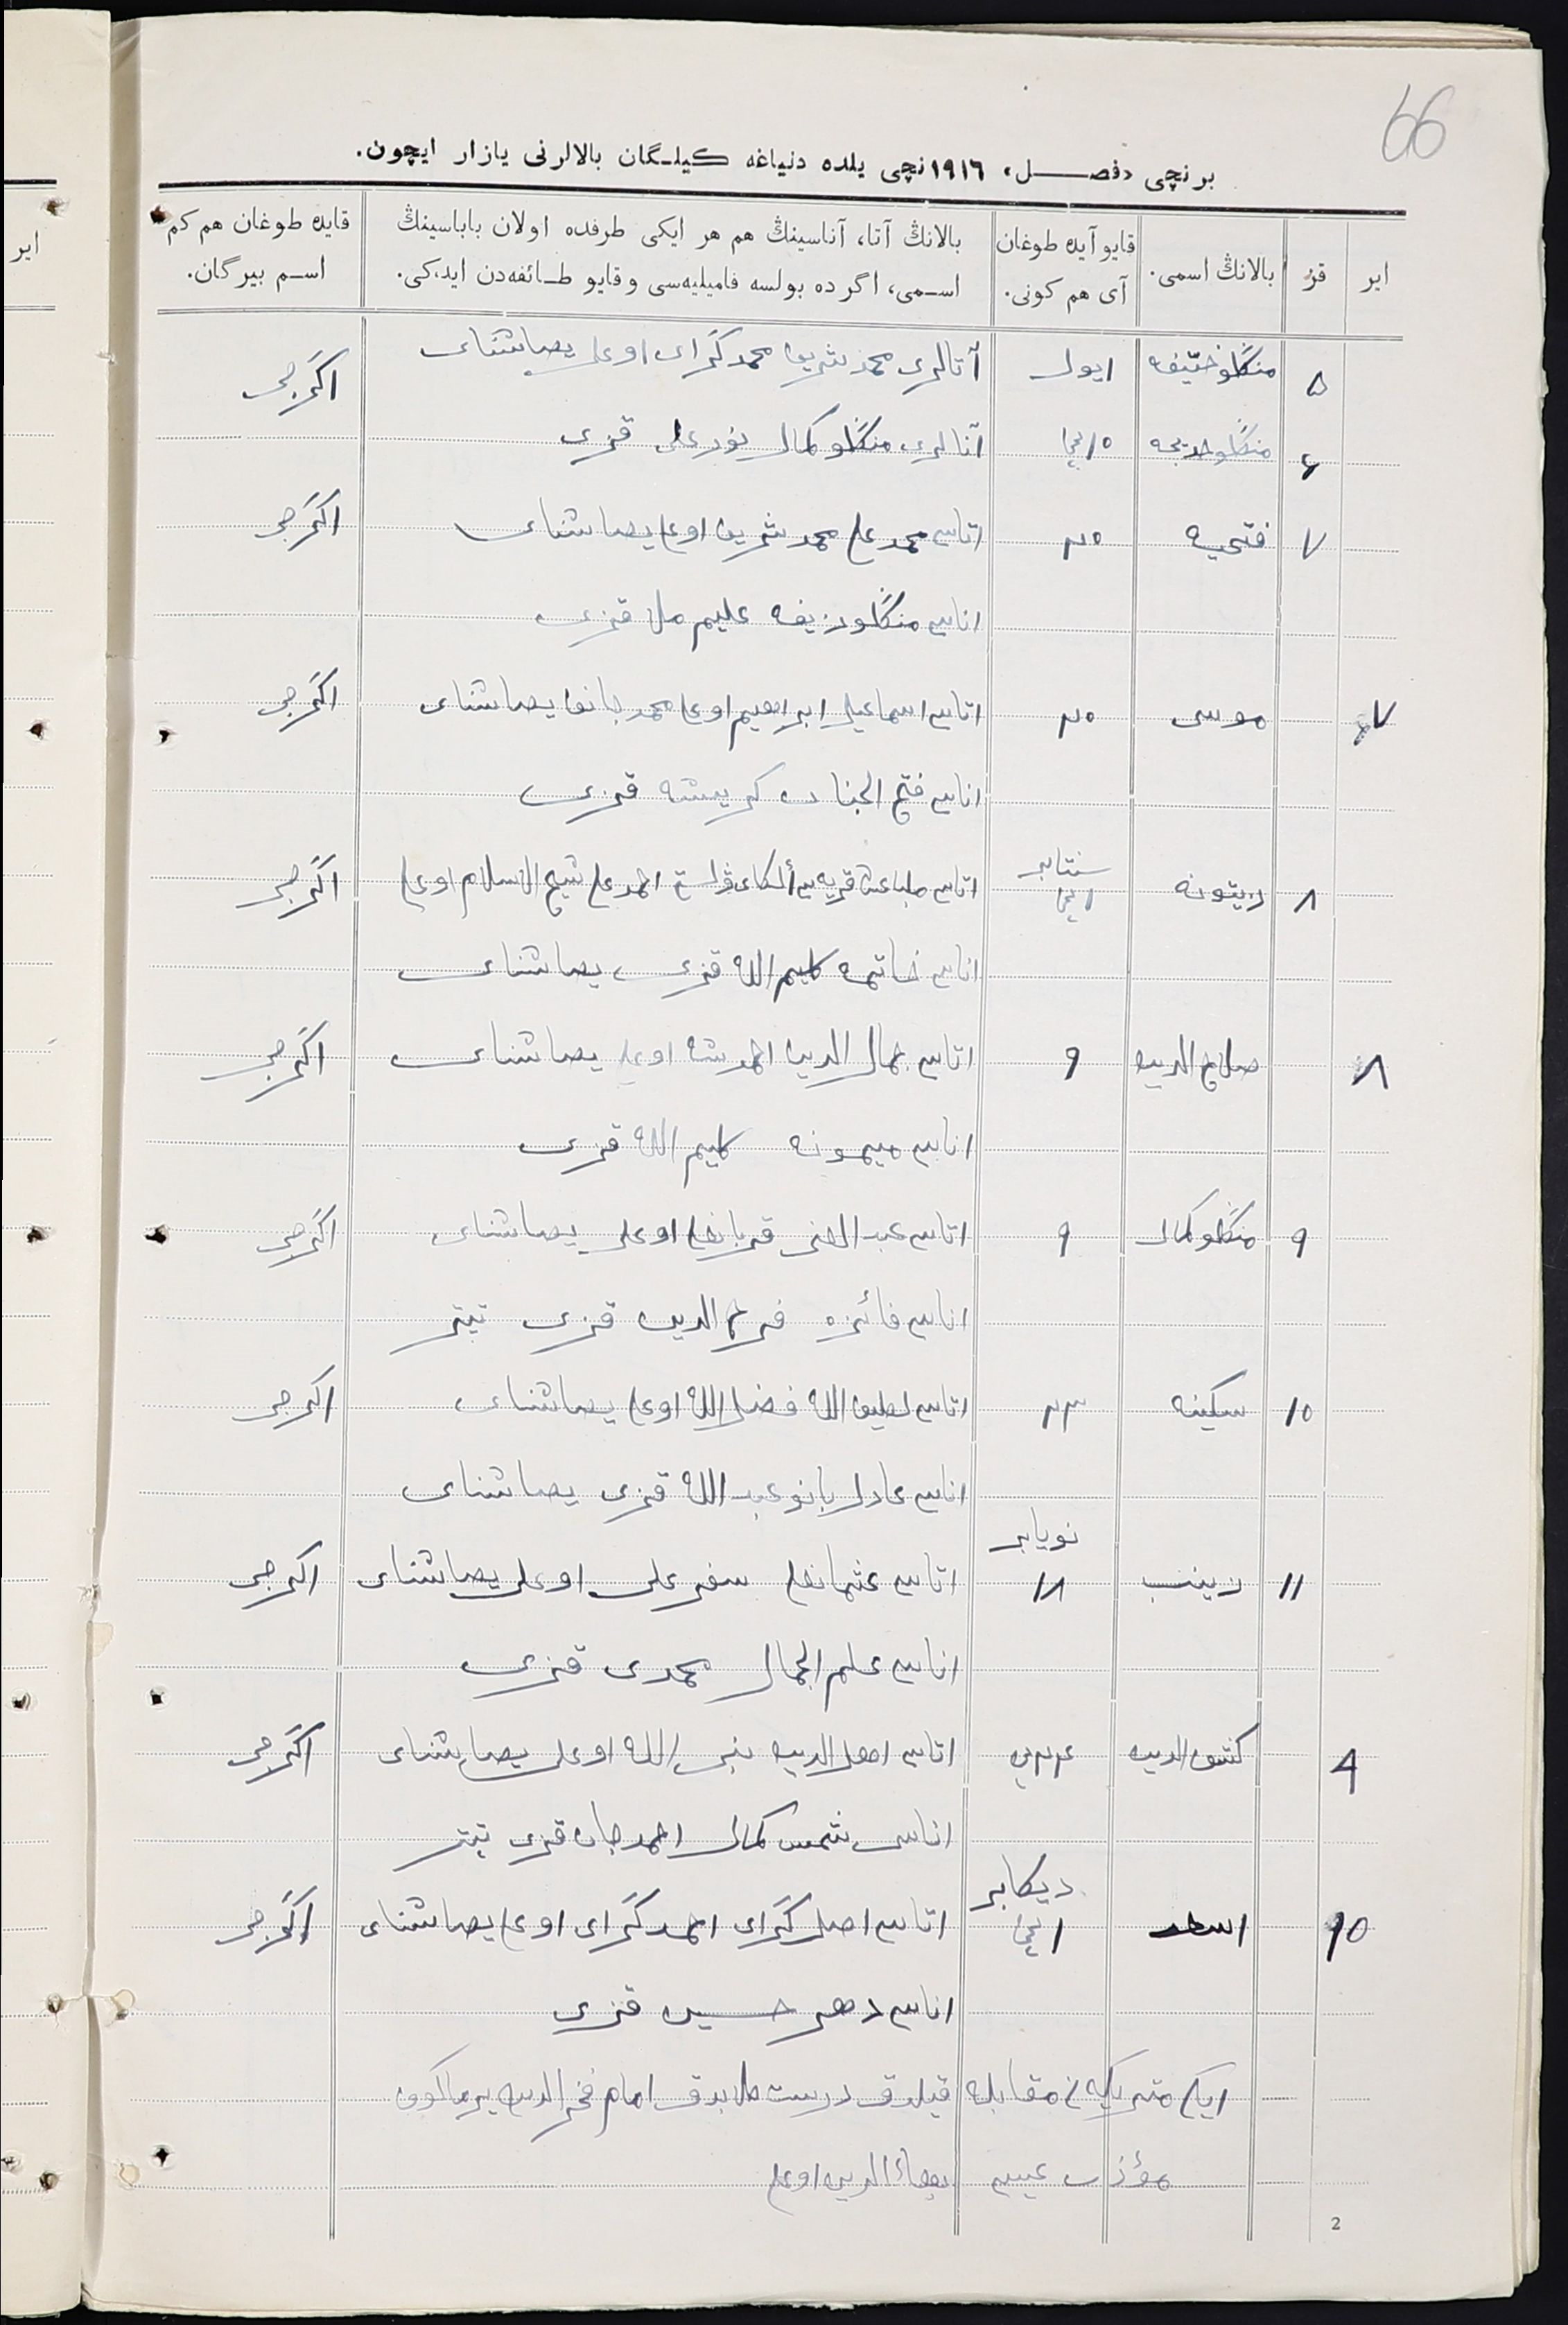 66
برنچی «فصل» ١٩١٦نچی یلده دنیاغه کیلگان بالالرنی یازار ایچون.
ایر
قز
بالانڭ اسمی.
قایو آیده طوغان آی هم کونی.
بالانڭ آتا، آناسینڭ هم هر ایکی طرفده اولان باباسینڭ اسمی، اگرده بولسه فامیلیه‌سی و قایو طائفه‌دن ایدکی.
قایده طوغان هم کم اسم بیرگان.
ایر
٥ ایول آتالری محمد شریف محمد گرای اوغلی یصاشنای اگرجی
٦ منگلو خدیجه ١٥نچی آنالری منگلو کمال نور علی قزی
٧ فتحیه ٢٥ اتاسی محمد علی محمد شریف اوغلی یصاشنای اگرجی
اناسی منگلو علیم ملا قزی
٧ موسی ٢٥ اتاسی اسماعیل ابراهیم اوغلی یصاشنای اگرجی
اناسی فتح الجنان قزی
٨ زیتونه سنتابر ١نچی اتاسی احمد علی شیخ الاسلام اوغلی اگرجی
اناسی کلیم الله قزی یصاشنای
٨ صلاح الدین ٩ اتاسی جمال الدین احمدشه اوغلی یصاشنای اگرجی
اناسی میمونه کلیم الله قزی
٩ منگلو کمال ٩ اتاسی عبد الغنی قربانعلی اوغلی یصاشنای اگرجی
اناسی فائزه الدین قزی تیتر
١٠ سکینه ٢٣ اتاسی لطیف الله فضل الله اوغلی یصاشنای اگرجی
اناسی عادل بانو عبد الله قزی یصاشنای
نویابر
١١ زینب ١٨ اتاسی عثمانعلی سفر علی اوغلی یصاشنای اگرجی
اناسی علم الجمال محمدی قزی
٩ کشف الدین اتاسی اهل الدین نبی الله اوغلی یصاشنای اگرجی
اناسی شمس کمال احمد جان قزی تیتر
دیکابر
١٠ اسعد ١نچی اتاسی اصل گرای احمد گرای اوغلی یصاشنای اگرجی
اناسی حسین قزی
ایکی متریکه‌نی مقابله قیلدق درست طابدق امام فخر الدین
مؤذن عیسی بهاء الدین اوغلی
2